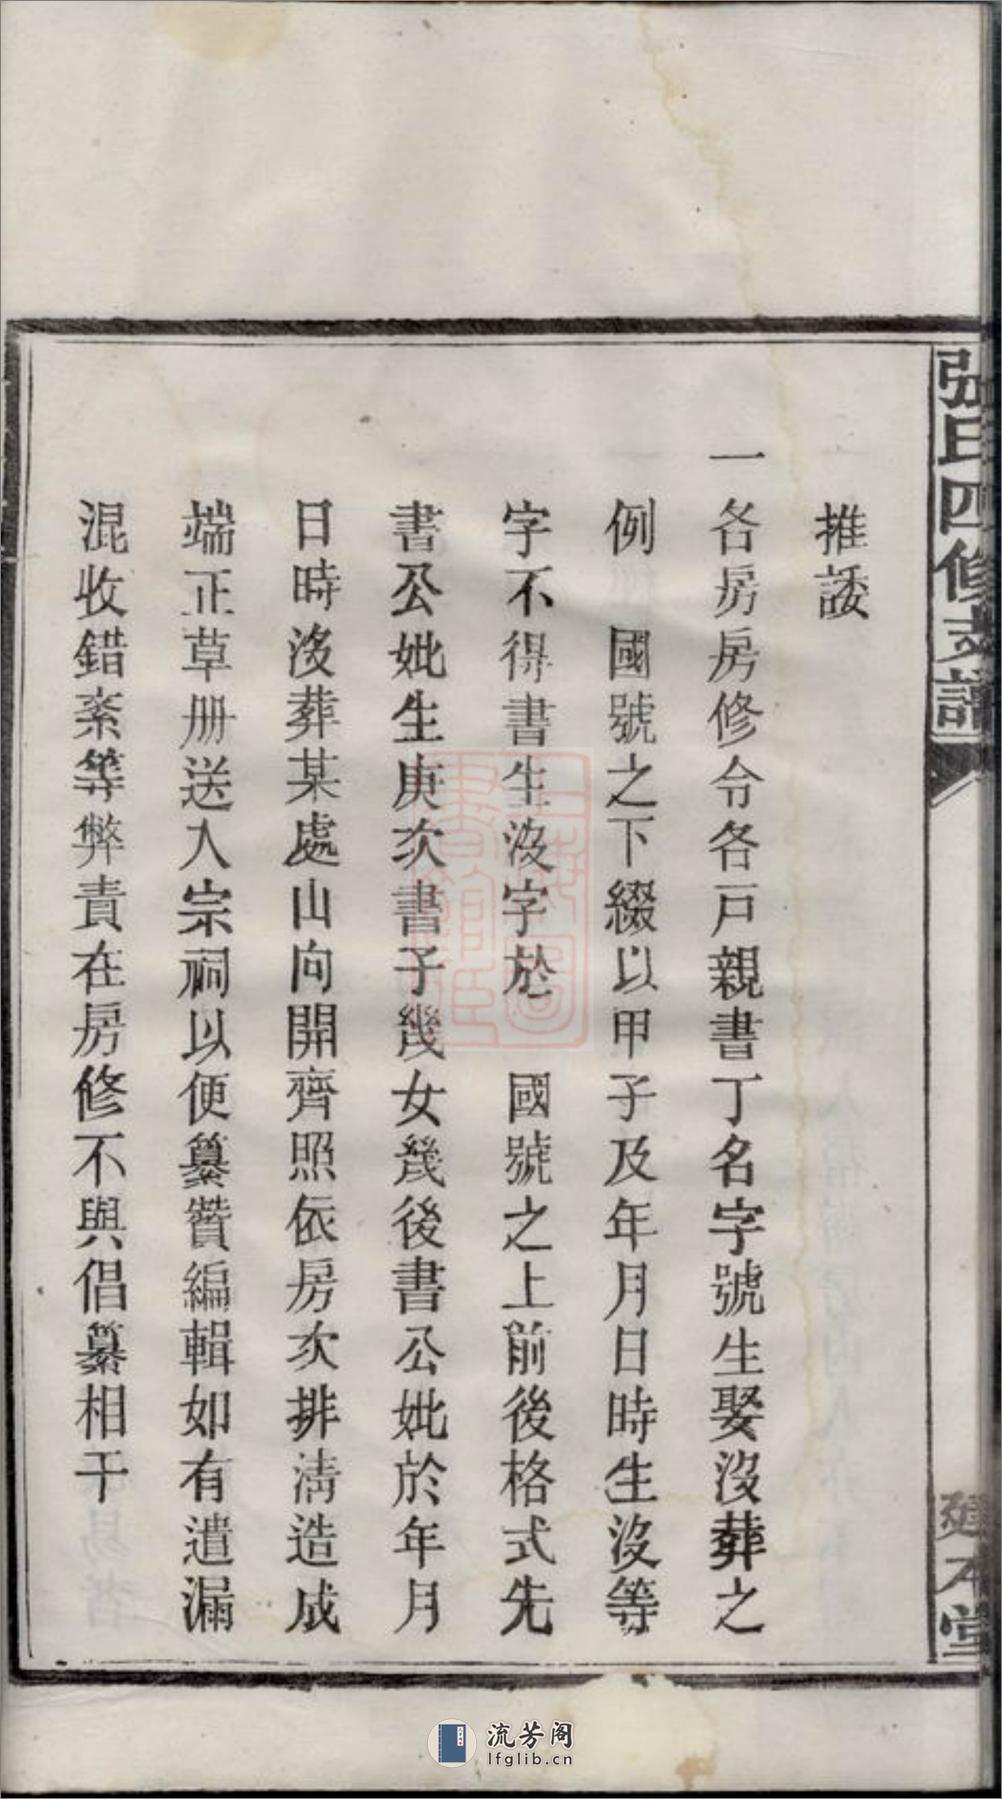 張氏四修支譜
建本堂
推諉
一各房房修令各戸親書丁名字號生娶沒葬之
例　國號之下綴以甲子及年月日時生沒等
字不得書生沒字於　國號之上前後格式先
書公妣生庚次書子幾女幾後書公妣於年月
日時沒葬某處山向開齊照依房次排清造成
端正草册送入宗祠以便纂贊編輯如有遺漏
混收錯紊等弊責在房修不與倡纂相干
流芳阁
lfglib.cn